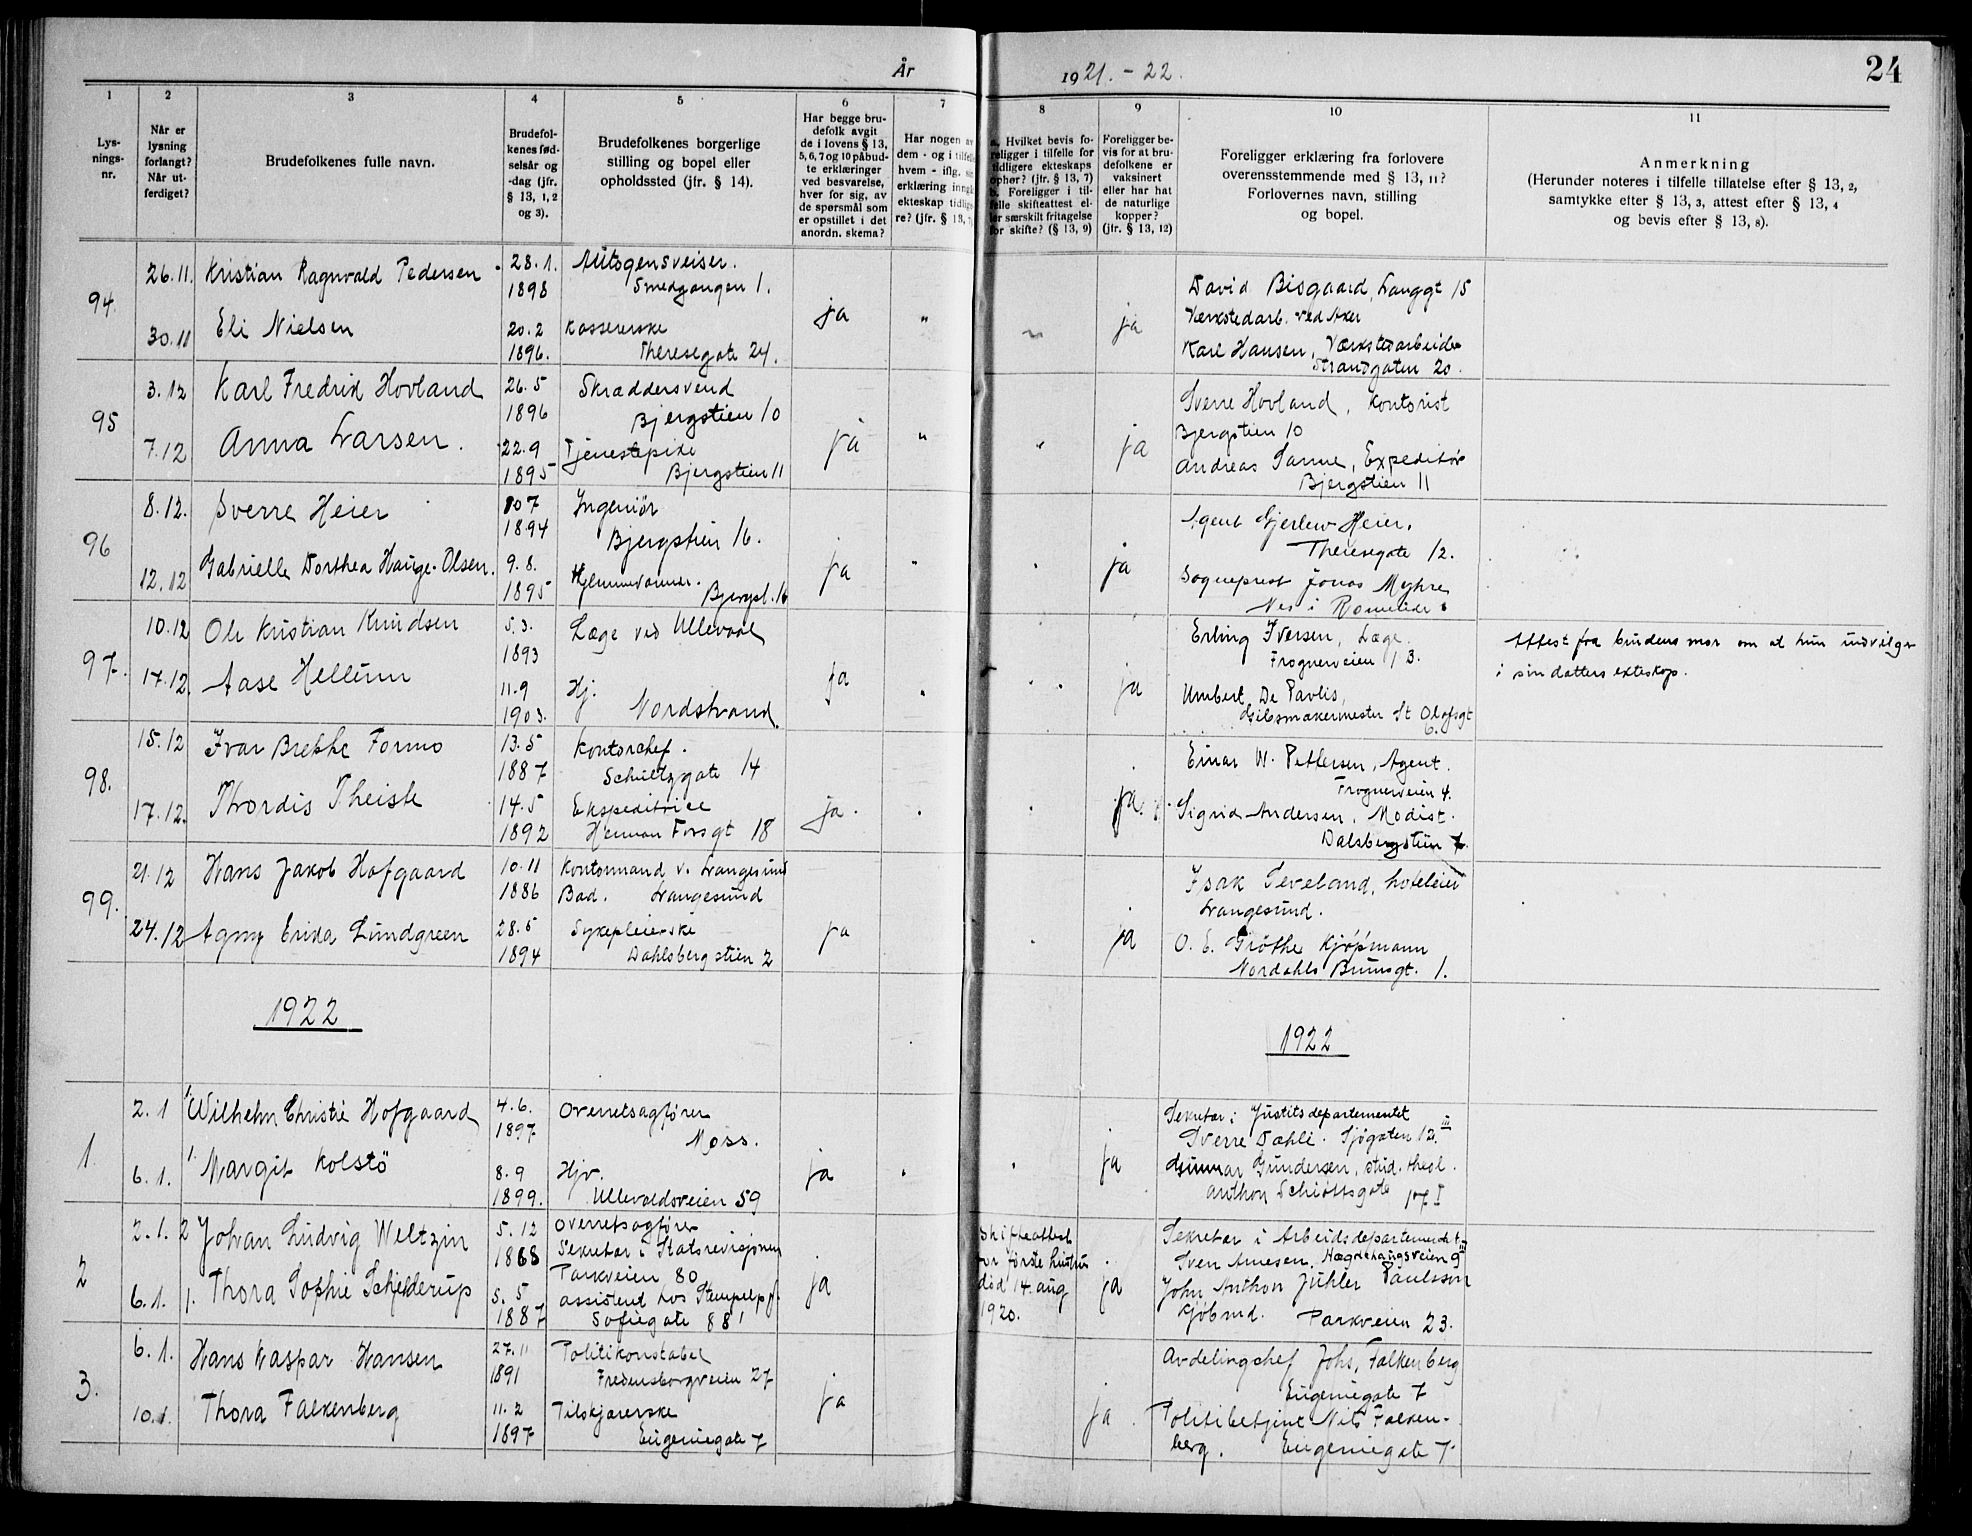 År 1921. - 22.
24
1
2
3
4
5
6
7
8
9
10
11
Lys-
nings-
nr.
Når er
lysning
forlangt?
Når ut-
ferdiget?
Brudefolkenes fulle navn.
Brudefol-
kenes fød-
selsår og
-dag (jfr.
§ 13, 1, 2
og 3).
Brudefolkenes borgerlige
stilling og bopel eller
opholdssted (jfr. § 14).
Har begge bru-
defolk avgit
de i lovens § 13,
5, 6, 7 og 10 påbud-
te erklæringer
ved besvarelse,
hver for sig, av
de spørsmål som
er opstillet i det
anordn. skema?
Har nogen av
dem - og i tilfelle
hvem - iflg. sin
erklæring inngå
ekteskap tidlige
re? (jfr. § 13, 7)
a. Hvilket bevis fo-
religger i tilfelle for
tidligere ekteskaps
ophør? (jfr. § 13, 7)
b. Foreligger i til-
felle skifteattest el-
ler særskilt fritagelse
for skifte? (§ 13, 9)
Foreligger be-
vis for at bru-
defolkene er
vaksinert
eller har hat
de naturlige
kopper?
(jfr. § 13, 12)
Foreligger erklæring fra forlovere
overensstemmende med § 13, 11?
Forlovernes navn, stilling
og bopel.
Anmerkning
(Herunder noteres i tilfelle tillatelse efter § 13, 2,
samtykke efter § 13, 3, attest efter § 13, 4
og bevis efter § 13, 8).
94.
26.11. Kristian Ragnvald Pedersen
28.1.
1898
Autogensveiser.
Smedgangen 1.
30.11 Eli Nielsen
20.2
1896.
Kassererske
Theresegate 24.
ja
"
"
ja
David Bisgaard, Langgt 15
Verkstedarb. ved Aker
Karl Hansen, Værkstedarbeider
Strandgaten 20.
95
3.12 Karl Fredrik Hovland
26.5
1896
Skræddersvend
Bjergstien 10
7.12 Anna Larsen.
22.9
1895
Tjenestepike
Bjergstien 11
ja
"
"
ja
Sverre Hovland, Kontorist
Bjergstien 10
Andreas Sanne, Expeditør
Bjergstien 11
96
8.12. Sverre Heier
1894
Ingeniør
Bjergstien 16.
12.12 Gabrielle Dorthea Hauge-Olsen.
9.8.
1895
Hjemmeværende.
Bjergst. 16
ja
"
ja
Agent Gjerlew Heier.
Theresegate 12.
Sogneprest Jonas Myhre
Nes i Romerike
97.
10.12 Ole Kristian Knudsen
5.3.
1893
Læge ved Ullevaal
17.12. Aase Hellum
11.9
1903.
Hj.
Nordstrand.
ja
ja
Erling Iversen, Læge.
Frognerveien 13.
Umbert De Pavlis,
Gibsmakermester St Olafsgt
6.
Attest fra brudens mor om at hun indvilger
i sin datters ekteskap.
98.
15.12 Ivar Brekke Formo
13.5
1887
Kontorchef.
Schultzgate 14
17.12. Thordis Theiste
14.5
1892
Ekspeditrice
Herman Fossgt 18
ja.
ja.
Einar W. Pettersen, Agent.
Frognerveien 4.
Sigrid Andersen, Modist.
Dalsbergstien 7.
99.
21.12 Hans Jakob Hofgaard
10.11
1886
Kontormand v. Langesund
Bad. Langesund
24.12 Agny Erida Lundgreen
28.5
1894
Sykepleierske
Dahlsbergstien 2
ja
ja
Isak Seveland, hoteleier
Langesund.
O. E. Grøthe Kjøpmann
Nordahls Brunsgt. 1.
1922
1922
1
2.1 Wilhelm Christie Hofgaard
4.6.
1897
Overretsagfører
Moss.
6.1. Margit Kolstö
8.9
1899.
Hjv.
Ullevoldsveien 59
ja
ja
Sekretær i Justitsdepartementet
Sverre Dahli. Sjøgaten 12. III
Gunnar Gundersen, stud. theol.
Anthon Schiøttsgate 17 I
2
2.1. 2 Johan Ludvig Weltzin
5.12
1868
Overretsagfører
Sekretær i Statsrevisjonen
Parkveien 80
6.1. 1. Thora Sophie Schjelderup
5.5
1887
assistend hos Stempelpf.
Sofiegate 88 I
ja
Skifteattest
for første hustru
død 14. aug
1920.
ja
Sekretær i Arbeidsdepartementet
Sven Arnesen, Hægdehaugsveien 9 III
John Anthon Juhler Paulsson
Kjøbmd. Parkveien 23.
3.
6.1. Hans Kaspar Hansen
27.11
1891
Politikonstabel
Fredensborgveien 27
10.1. Thora Falkenberg
11.2
1897
Tilskjærerske
Eugeniegate 7
ja
ja.
Avdelingchef Johs. Falkenberg
Eugeniegate 7
Politibetjent Nils Falken-
berg. Eugeniegate 7.